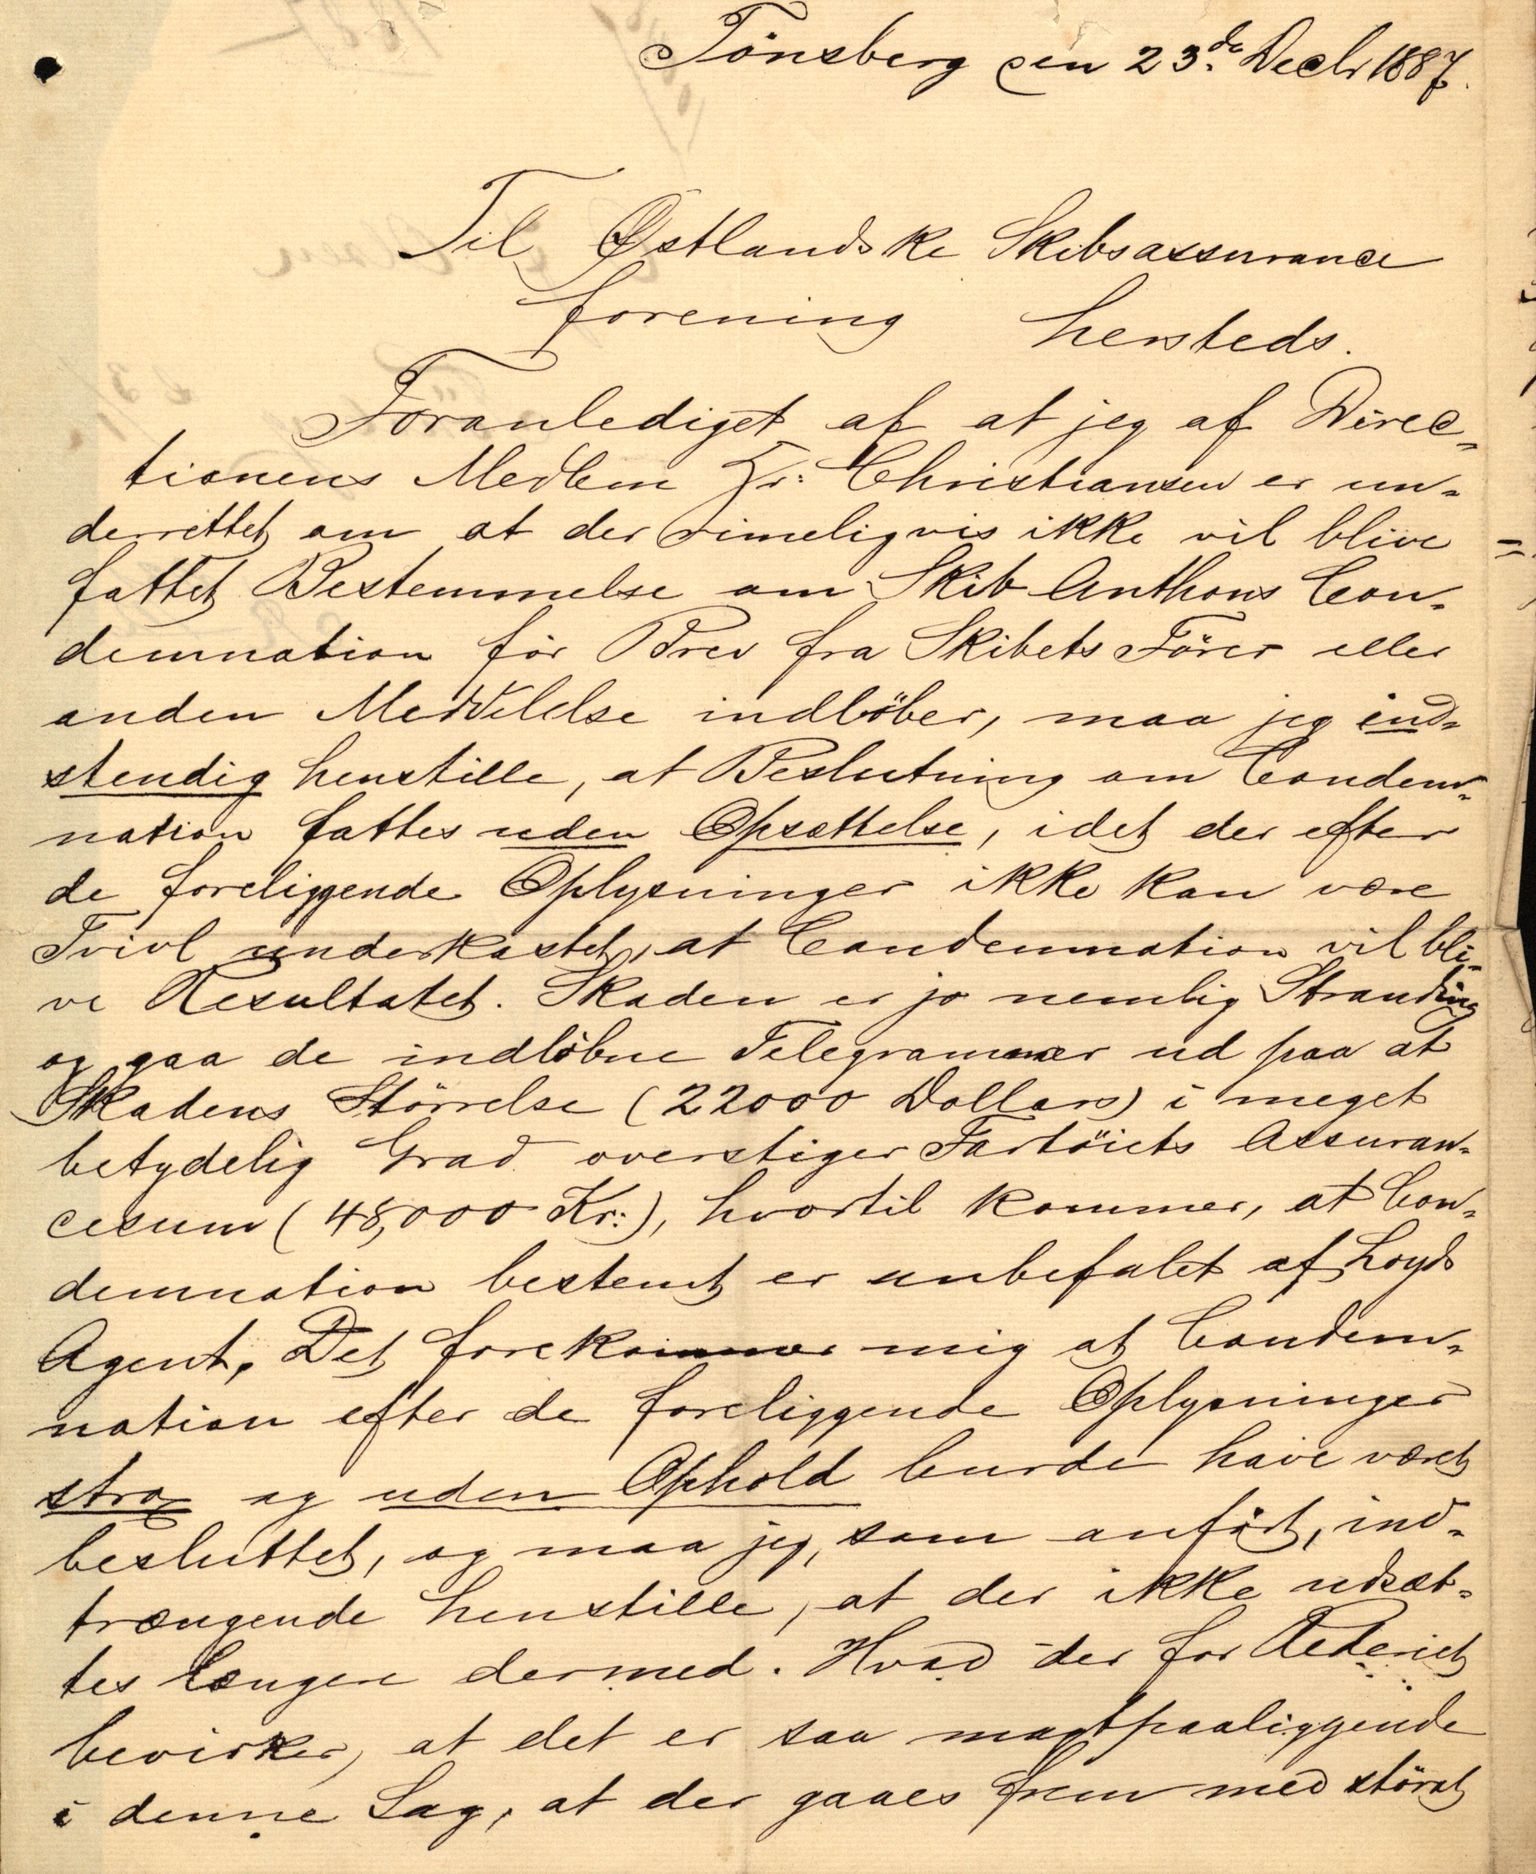 Tönsberg den 23de Decbr 1887.
Til Østlandske Skibsassurance
forening hersteds.
Foranlediget af at jeg af Direc-
tionens Medlem Hr: Christiansen er un-
derrettet om at der rimeligvis ikke vil blive
fattet Bestemmelse om Skib Anthons Con-
demnation för Brev fra Skibets Förer eller
anden Meddelelse indlöber, maa jeg ind-
stendig henstille, at Beslutning om Condem-
nation fattes uden Opsættelse, idet der efter
de foreliggende Oplysninger ikke kan være
Tvivl underkastet, at Condemnation vil bli-
ve Resultatet. Skaden er jo nemlig Stranding
og gaa de indløbne Telegrammer ud paa at
Skadens Störrelse (22000 Dollars) i meget
betydelig Grad overstiger Fartöiets Assuran-
cesum (48,000 Kr:), hvortil kommer, at Con-
demnation bestemt er anbefalet af Loyds
Agent. Det forekommer mig at Condem-
nation efter de foreliggende Oplysninger
strax og uden Ophold burde have været
besluttet, og maa jeg, som anført, ind-
trængende henstille, at der ikke udsæt-
tes længere dermed. Hvad der for Rederiet
bevirker, at det er saa magtpaaliggende
i denne Sag, at der gaaes frem med störst